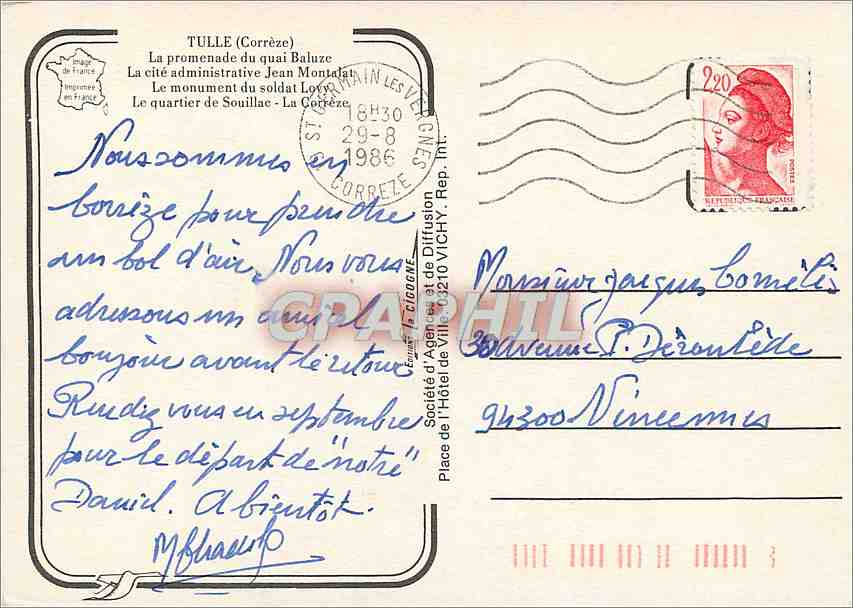 TULLE (Corrèze)
La promenade du quai Baluze
La cité administrative Jean Montalat
Le monument du soldat Lovy
Le quartier de Souillac - La Corrèze
Image
de France
Imprimée
en France
Nous sommes en
Corrèze pour prendre
un bol d'air. Nous vous
adressons un amical
bonjour avant le retour
Rendez vous en septembre
pour le départ de "notre"
Daniel. A bientôt.
ST GERMAIN LES VERGNES
18H30
29-8
1986
CORREZE
Editions La CIGOGNE
Société d'Agences et de Diffusion
Place de l'Hôtel de Ville. 03210 VICHY. Rep. Int.
CPAPHIL
2,20
POSTES
REPUBLIQUE FRANÇAISE
Monsieur Jacques
30 avenue P. Déroulède
94300 Vincennes